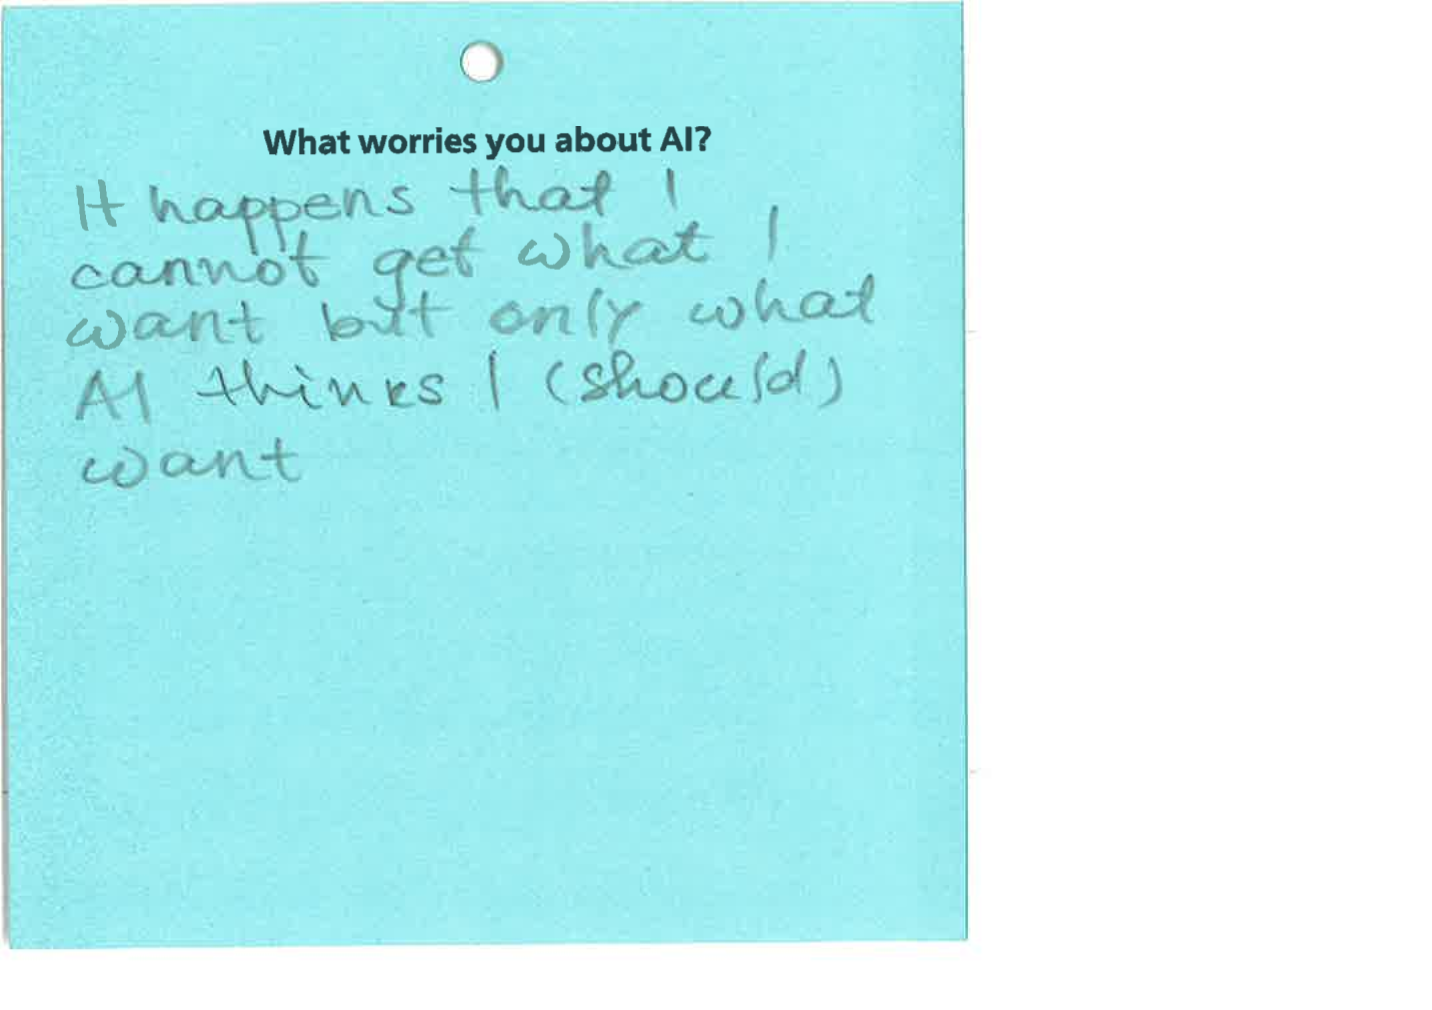 What worries you about AI?
It happens that I
cannot get what I
want but only what
AI thinks I (should)
want